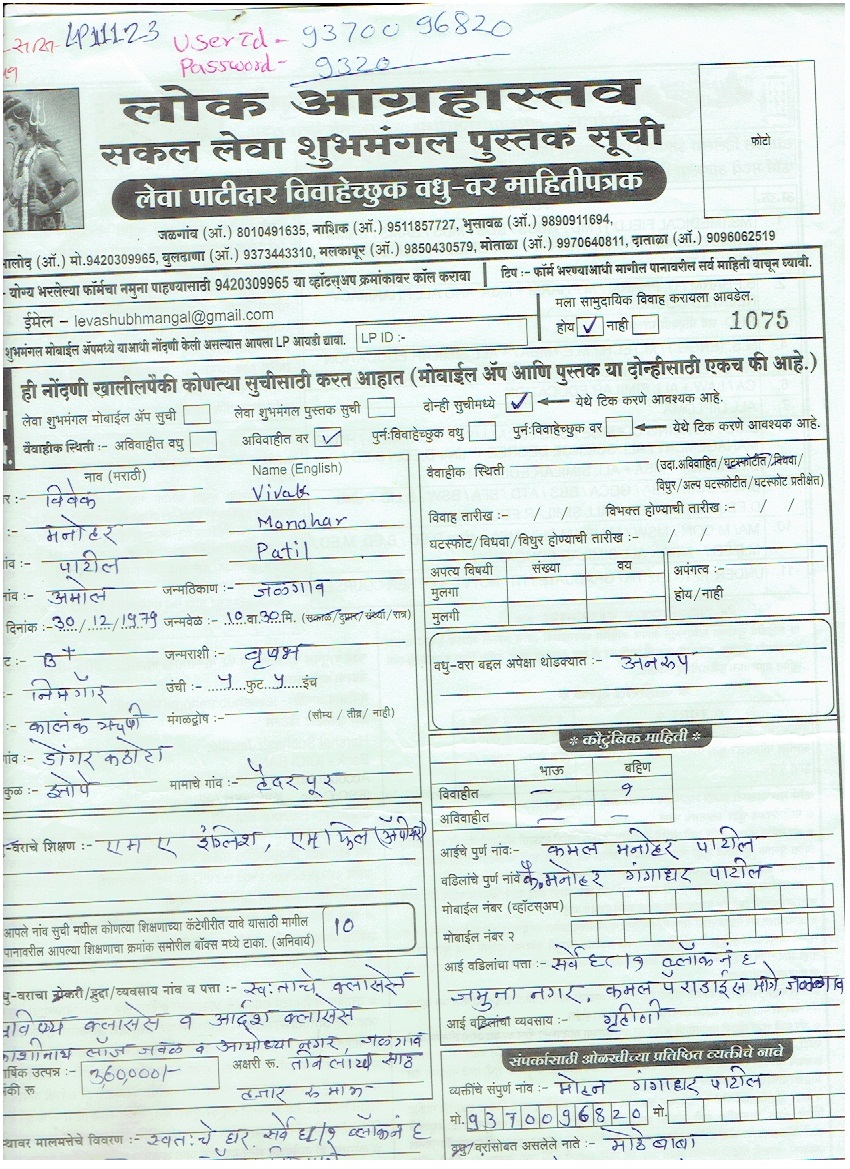 LP11123
User Id - 93700 96820
Password:- 9320
लोक आग्रहास्तव
सकल लेवा शुभमंगल पुस्तक सूची
फोटो
लेवा पाटीदार विवाहेच्छुक वधु-वर माहितीपत्रक
जळगांव (ऑ.) 8010491635, नाशिक (ऑ.) 9511857727, भुसावळ (ऑ.) 9890911694,
मालोद (ऑ.) मो.9420309965, बुलढाणा (ऑ.) 9373443310, मलकापूर (ऑ.) 9850430579, मोताळा (ऑ.) 9970640811, दाताळा (ऑ.) 9096062519
- योग्य भरलेल्या फॉर्मचा नमुना पाहण्यासाठी 9420309965 या व्हॉटस्अप क्रमांकावर कॉल करावा
टिप :- फॉर्म भरण्याआधी मागील पानावरील सर्व माहिती वाचून घ्यावी.
ईमेल – levashubhmangal@gmail.com
मला सामुदायिक विवाह करायला आवडेल.
होय ✓ नाही
1075
शुभमंगल मोबाईल ॲपमध्ये याआधी नोंदणी केली असल्यास आपला LP आयडी द्यावा. LP ID :-
ही नोंदणी खालीलपैकी कोणत्या सुचीसाठी करत आहात (मोबाईल ॲप आणि पुस्तक या दोन्हीसाठी एकच फी आहे.)
लेवा शुभमंगल मोबाईल ॲप सुची लेवा शुभमंगल पुस्तक सुची दोन्ही सुचीमध्ये ✓ येथे टिक करणे आवश्यक आहे.
वैवाहीक स्थिती :- अविवाहीत वधु अविवाहीत वर ✓ पुर्न:विवाहेच्छुक वधु पुर्न:विवाहेच्छुक वर येथे टिक करणे आवश्यक आहे.
नाव (मराठी) Name (English)
विवेक Vivek
मनोहर Manohar
पाटील Patil
अमोल जन्मठिकाण :- जळगाव
दिनांक :- 30/12/1979 जन्मवेळ :- 10 वा.30 मि. (सकाळ/दुपार/संध्या/रात्र)
B+ जन्मराशी :- वृषभ
उंची :- 5 फुट 5 इंच
मंगळदोष :- (सौम्य / तीव्र / नाही)
डोंगर कठोरा
कुळ :- मामाचे गांव :- हैदरपूर
वैवाहीक स्थिती (उदा.अविवाहित/घटस्फोटीत/विधवा/
विधुर/अल्प घटस्फोटीत/घटस्फोट प्रतीक्षेत)
विवाह तारीख :- / / विभक्त होण्याची तारीख :- / /
घटस्फोट/विधवा/विधुर होण्याची तारीख :- / /
अपत्य विषयी संख्या वय अपंगत्व :-
मुलगा होय/नाही
मुलगी
वधु-वरा बद्दल अपेक्षा थोडक्यात :- अनरुप
* कौटुंबिक माहिती *
भाऊ बहिण
विवाहीत – १
अविवाहीत – –
-वराचे शिक्षण :- एम ए इंग्लिश, एम फिल (ॲपीयर)
आईचे पुर्ण नांव:- कमल मनोहर पाटील
वडिलांचे पुर्ण नांव कै. मनोहर गंगाधर पाटील
मोबाईल नंबर (व्हॉटस्अप)
मोबाईल नंबर २
आपले नांव सुची मधील कोणत्या शिक्षणाच्या कॅटेगीरीत यावे यासाठी मागील
पानावरील आपल्या शिक्षणाचा क्रमांक समोरील बॉक्स मध्ये टाका. (अनिवार्य)
10
आई वडिलांचा पत्ता :- सर्वे ६८/१ ब्लॉक नं ६
जमुना नगर, कमल पॅराडाईस मागे, जळगाव
आई वडिलांचा व्यवसाय :- गृहीणी
-वराचा नोकरी/हुद्दा/व्यवसाय नांव व पत्ता :- स्वःताचे क्लासेस
क्लासेस व आदर्श क्लासेस
काशीनाथ लॉज जवळ व अयोध्या नगर, जळगाव
र्षिक उत्पन्न :- 3,60,000/- अक्षरी रू. तीन लाख साठ
हजार रु मात्र
संपकांसाठी ओळखीच्या प्रतिष्ठित व्यक्तीचे नावे
व्यक्तींचे संपुर्ण नांव :- मोहन गंगाधर पाटील
मो. 9370096820 मो.
वधु/वरांसोबत असलेले नाते :- मोठे बाबा
स्थावर मालमत्तेचे विवरण :- स्वतःचे घर, सर्वे ६८/१ ब्लॉक नं ६